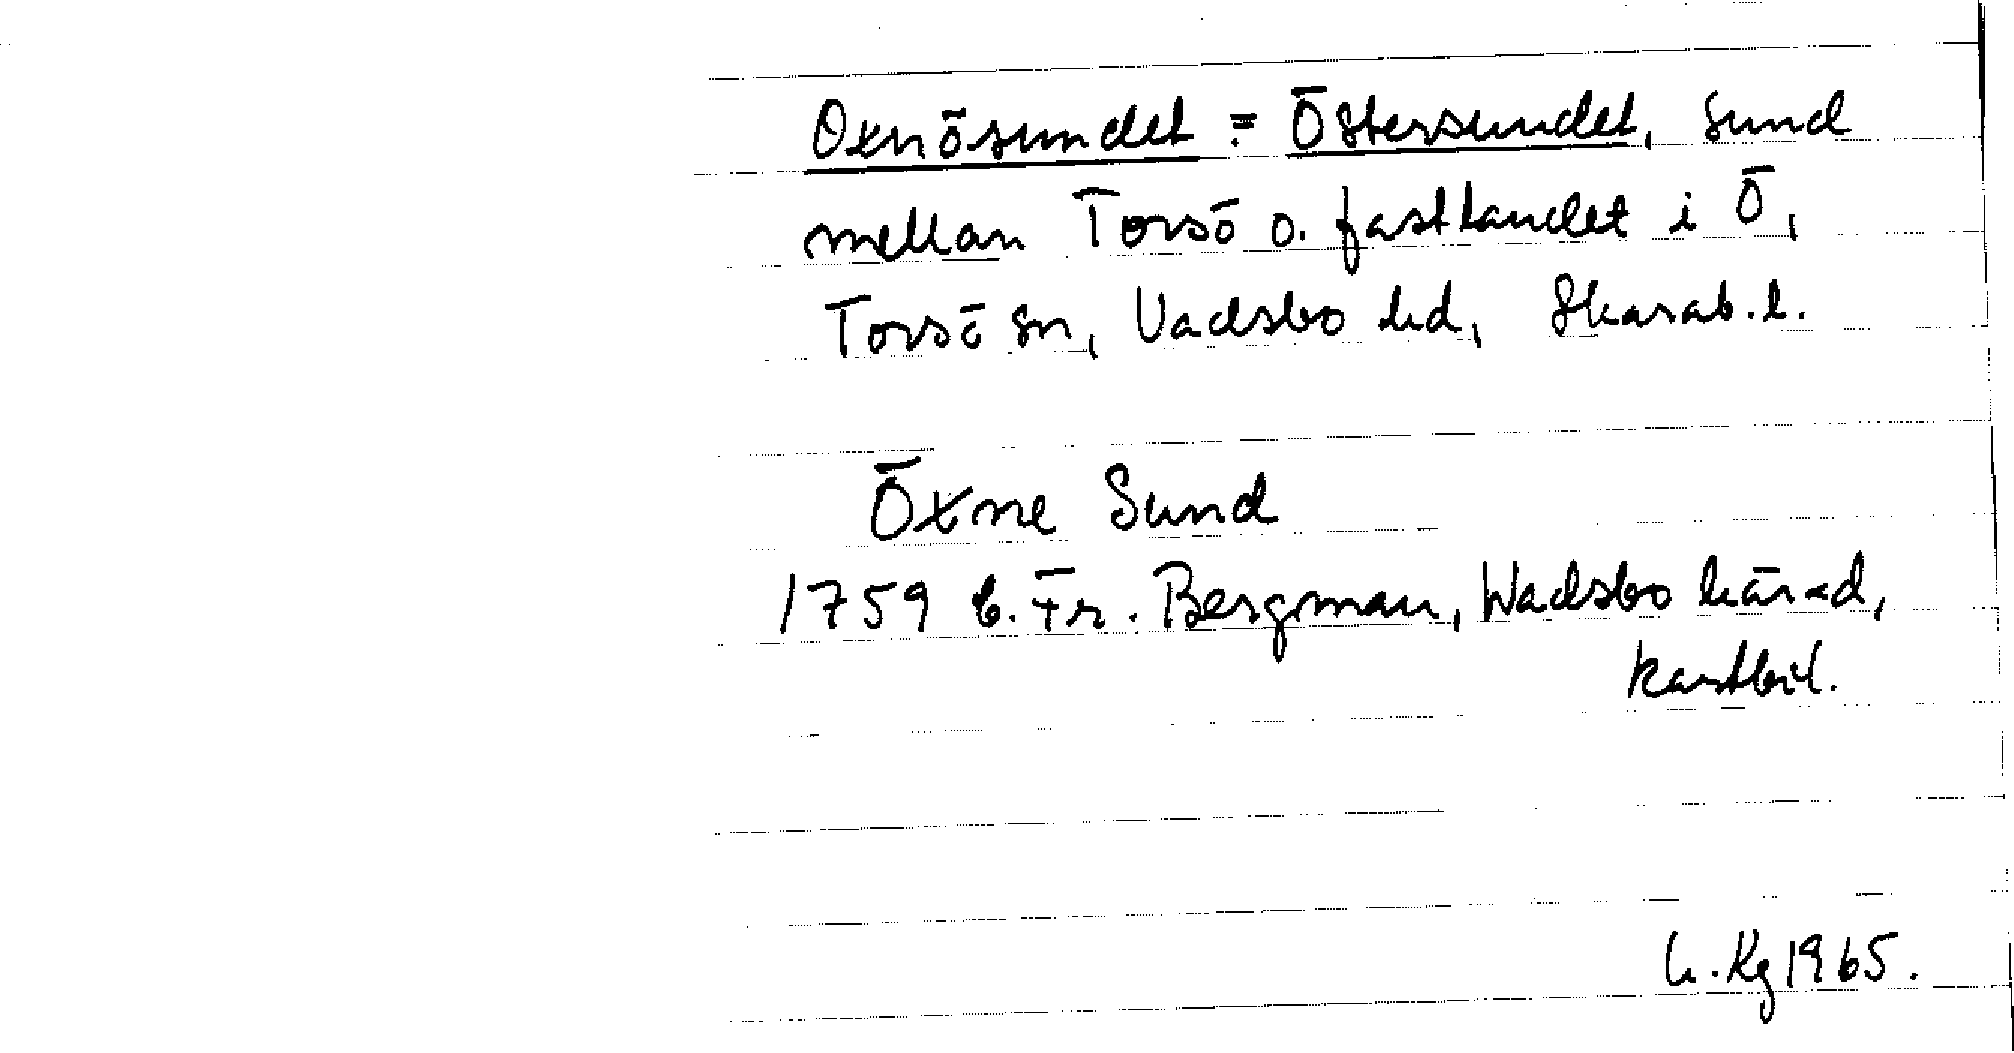 Oxnösundet = Östersundet, sund
mellan Torsö o. fastlandet i Ö,
Torsö sn, Vadsbo hd, Skarab. l.
Öxne Sund
1759 b. Fr. Bergman, Wadsbo härad,
kartbil.
Kg 1965.